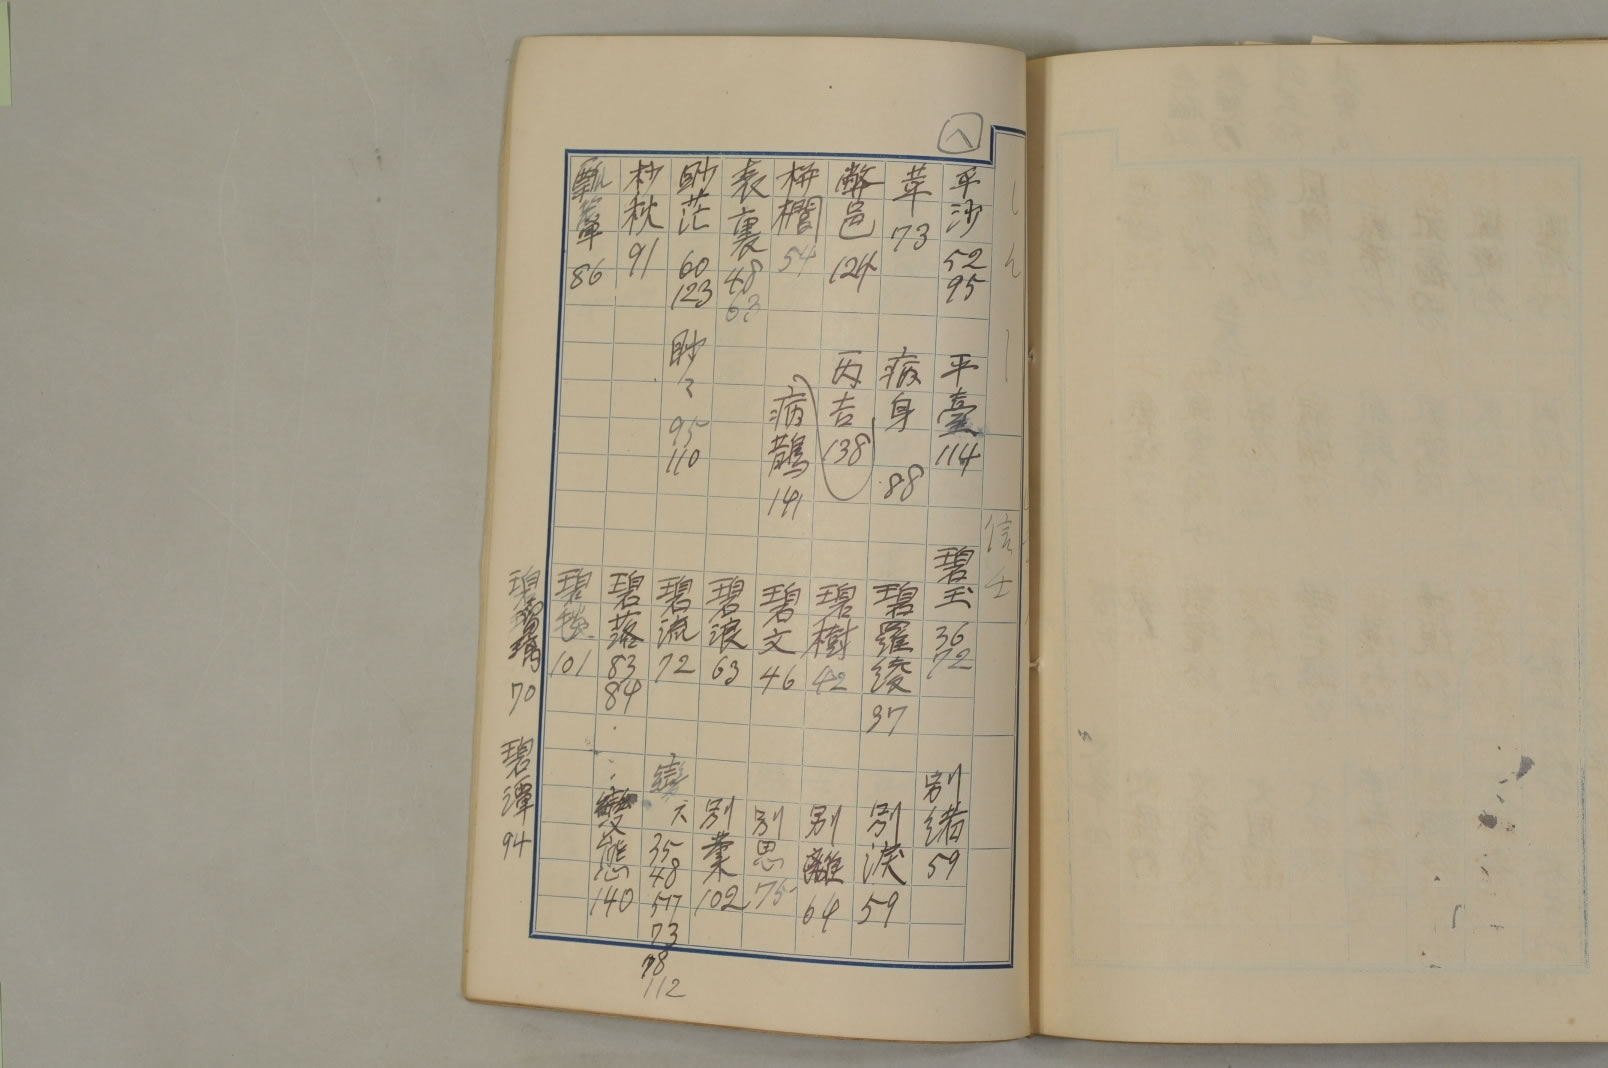 へ
平沙 52 95
平臺 114
碧玉 36 72
別緒 59
苹 73
病身 88
碧羅綾 37
別淚 59
弊邑 124
丙吉 138
碧樹 42
別離 64
栟櫚 54
病鵲 141
碧文 46
別思 75
表裏 48 63
碧浪 63
別業 102
眇茫 60 123
眇々 95 110
碧流 72
35 48 57 73 78 112
杪秋 91
碧落 83 84
變態 140
瓢箪 86
碧毯 101
碧 70
碧潭 94
信士